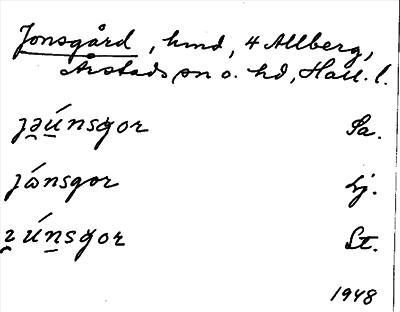 Jonsgård, hmd, 4 Allberg,
Årstads sn o. hd, Hall. l.
jə̯ú̱nsgor Sa.
jɷ́nsgor Lj.
ɿ̯ún̠sgor St.
1948